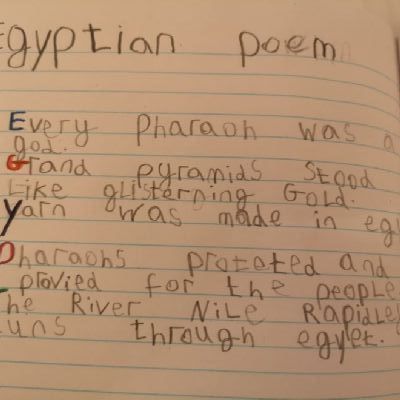 Egyptian poem
Every Pharaoh was a
god.
Grand pyramids stood
Like glisterning Gold.
Yarn was made in egy
Pharaohs protated and
provied for the people
The River Nile Rapidley
runs through egyet.